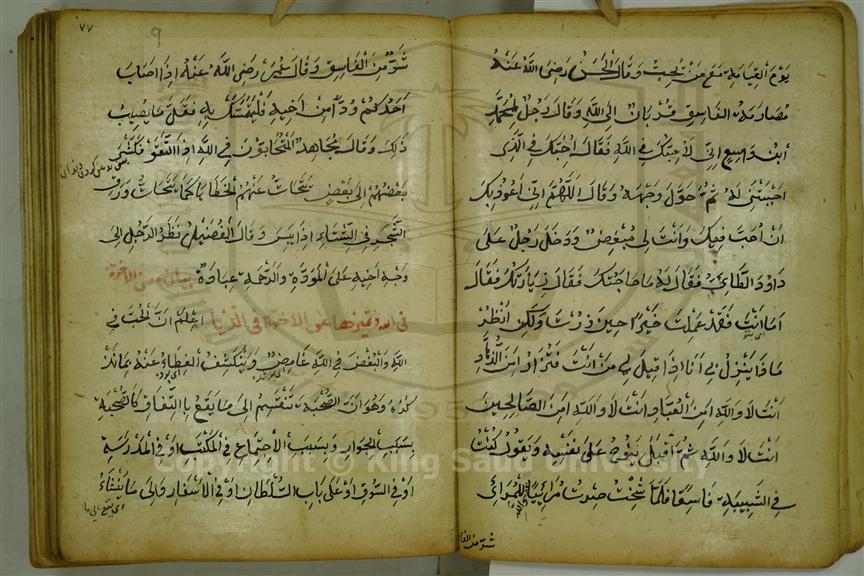 يَوْمَ القِيَامَةِ مَعَ مَنْ يُحِبُّ وَقَالَ الْحَسَنُ رَضِىَ اللَّهُ عَنْهُ
مُصَارَمَةُ الفَاسِقِ قُرْبَانٌ اِلَى اللَّهِ وَقَالَ رَجُلٌ لِمُحَمَّدِ
اَبْنِ وَاسِعٍ اِنِّى لَاُحِبُّكَ فِى اللَّهِ فَقَالَ اَحَبَّكَ فِى الَّذِى
اَحْبَبْتَنِى لَهُ ثُمَّ حَوَّلَ وَجْهَهُ وَقَالَ اَللّٰهُمَّ اِنِّى اَعُوذُ بِكَ
اَنْ اُحَبَّ فِيكَ وَاَنْتَ لِى مُبْغِضٌ وَدَخَلَ رَجُلٌ عَلَى
دَاوُدَ الطَّائِىِّ فَقَالَ لَهُ مَا حَاجَتُكَ فَقَالَ زِيَارَتُكَ فَقَالَ
اَمَّا اَنْتَ فَقَدْ عَمِلْتَ خَيْرًا حِينَ زُرْتَ وَلَكِنِ انْظُرْ
مَاذَا يَنْزِلُ بِى اَنَا اِذَا قِيلَ لِى مَنْ اَنْتَ فَتُزَارَ اَمِنَ الزُّهَّادِ
اَنْتَ لَا وَاللَّهِ اَمِنَ الْعُبَّادِ اَنْتَ لَا وَاللَّهِ اَمِنَ الصَّالِحِينَ
اَنْتَ لَا وَاللَّهِ ثُمَّ اَقْبَلَ يُوَبِّخُ عَلَى نَفْسِهِ وَيَقُولُ كُنْتُ
فِى الشَّبِيبَةِ فَاسِقًا فَلَمَّا شِخْتُ صِرْتُ مُرَائِيًا وَاللَّهِ لَلْمُرَائِى
شر من الفا
٧٧
شَرٌّ مِنَ الْفَاسِقِ وَقَالَ عُمَرُ رَضِىَ اللَّهُ عَنْهُ اِذَا اَصَابَ
اَحَدُكُمْ وُدًّا مِنْ اَخِيهِ فَلْيَتَمَسَّكْ بِهِ فَقَلَّ مَا يُصِيبُ
ذَلِكَ وَقَالَ مُجَاهِدٌ اَلْمُتَحَابُّونَ فِى اللَّهِ اِذَا الْتَقَوْا فَكَشَّرَ
بَعْضُهُمْ اِلَى بَعْضٍ تَتَحَاتُّ عَنْهُمُ الْخَطَايَا كَمَا تَتَحَاتُّ وَرَقُ
الشَّجَرِ فِى الشِّتَاءِ اِذَا يَبِسَ وَقَالَ الْفُضَيْلُ نَظَرُ الرَّجُلِ اِلَى
وَجْهِ اَخِيهِ عَلَى الْمَوَدَّةِ وَالرَّحْمَةِ عِبَادَةٌ بيان معنى الاخوة
فى الله وتميزها عن الاخوة فى الدنيا اِعْلَمْ اَنَّ الْحُبَّ فِى
اللَّهِ وَالْبُغْضَ فِى اللَّهِ غَامِضٌ وَيَنْكَشِفُ الغِطَاءُ عَنْهُ بِمَا نَذْ
كُرُهُ وَهُوَ اَنَّ الصُّحْبَةَ تَنْقَسِمُ اِلَى مَا يَقَعُ بِالِاتِّفَاقِ كَالصُّحْبَةِ
بِسَبَبِ الْجِوَارِ وَبِسَبَبِ الْاِجْتِمَاعِ فِى الْمَكْتَبِ اَوْ فِى الْمَدْرَسَةِ
اَوْ فِى السُّوقِ اَوْ عَلَى بَابِ السُّلْطَانِ اَوْ فِى الْاَسْفَارِ وَاِلَى مَا يَنْشَأُ
Copyright © King Saud University